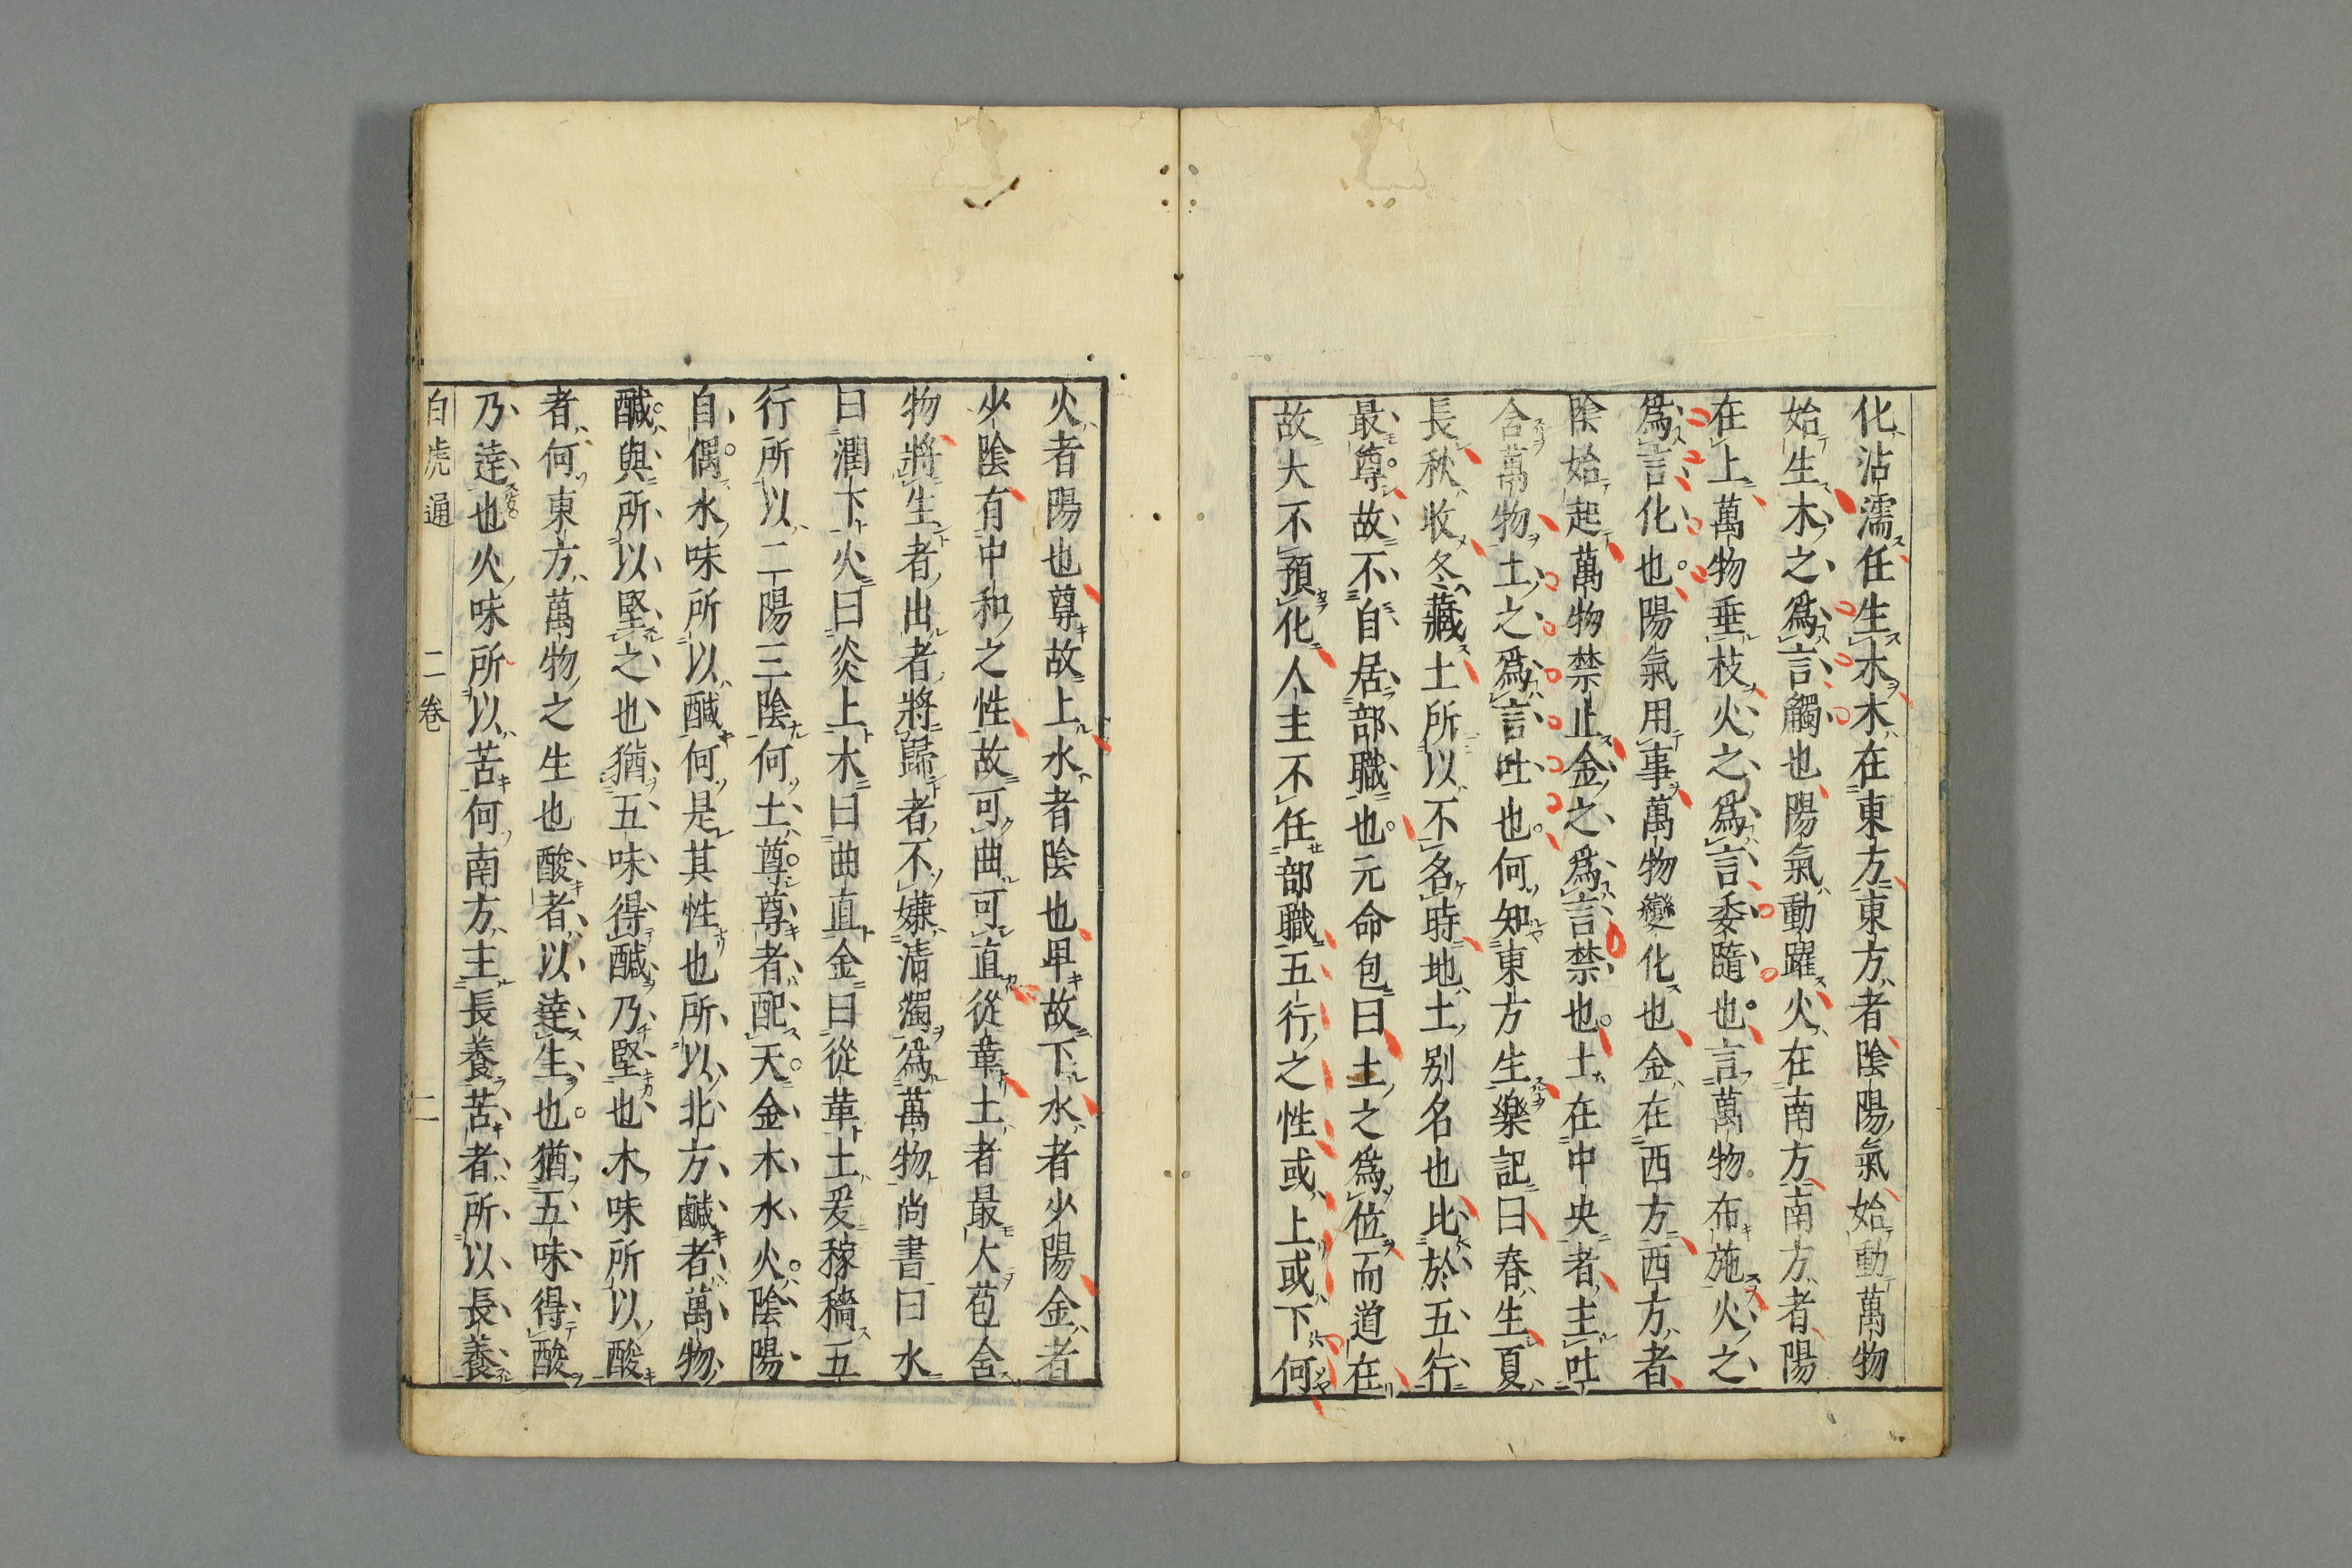 化沾濡任生木木在東方東方者陰陽氣始動萬物
始生木之爲言觸也陽氣動躍火在南方南方者陽
在上萬物垂枝火之爲言委隨也言萬物布施火之
爲言化也陽氣用事萬物變化也金在西方西方者
陰始起萬物禁止金之爲言禁也土在中央者主吐
含萬物土之爲言吐也何知東方生樂記曰春生夏
長秋收冬藏土所以不名時地土別名也比於五行
最尊故不自居部職也元命包曰土之爲位而道在
故大不預化人主不任部職五行之性或上或下何
火者陽也尊故上水者陰也卑故下水者少陽金者
少陰有中和之性故可曲可直從革土者最大苞含
物將生者出者將歸者不嫌清濁爲萬物尚書曰水
曰潤下火曰炎上木曰曲直金曰從革土爰稼穡五
行所以二陽三陰何土尊尊者配天金木水火陰陽
自偶水味所以鹹何是其性也所以北方鹹者萬物
鹹與所以堅之也猶五味得鹹乃堅也木味所以酸
者何東方萬物之生也酸者以達生也猶五味得酸
乃達也火味所以苦何南方主長養苦者所以長養
白虎通 二卷 二